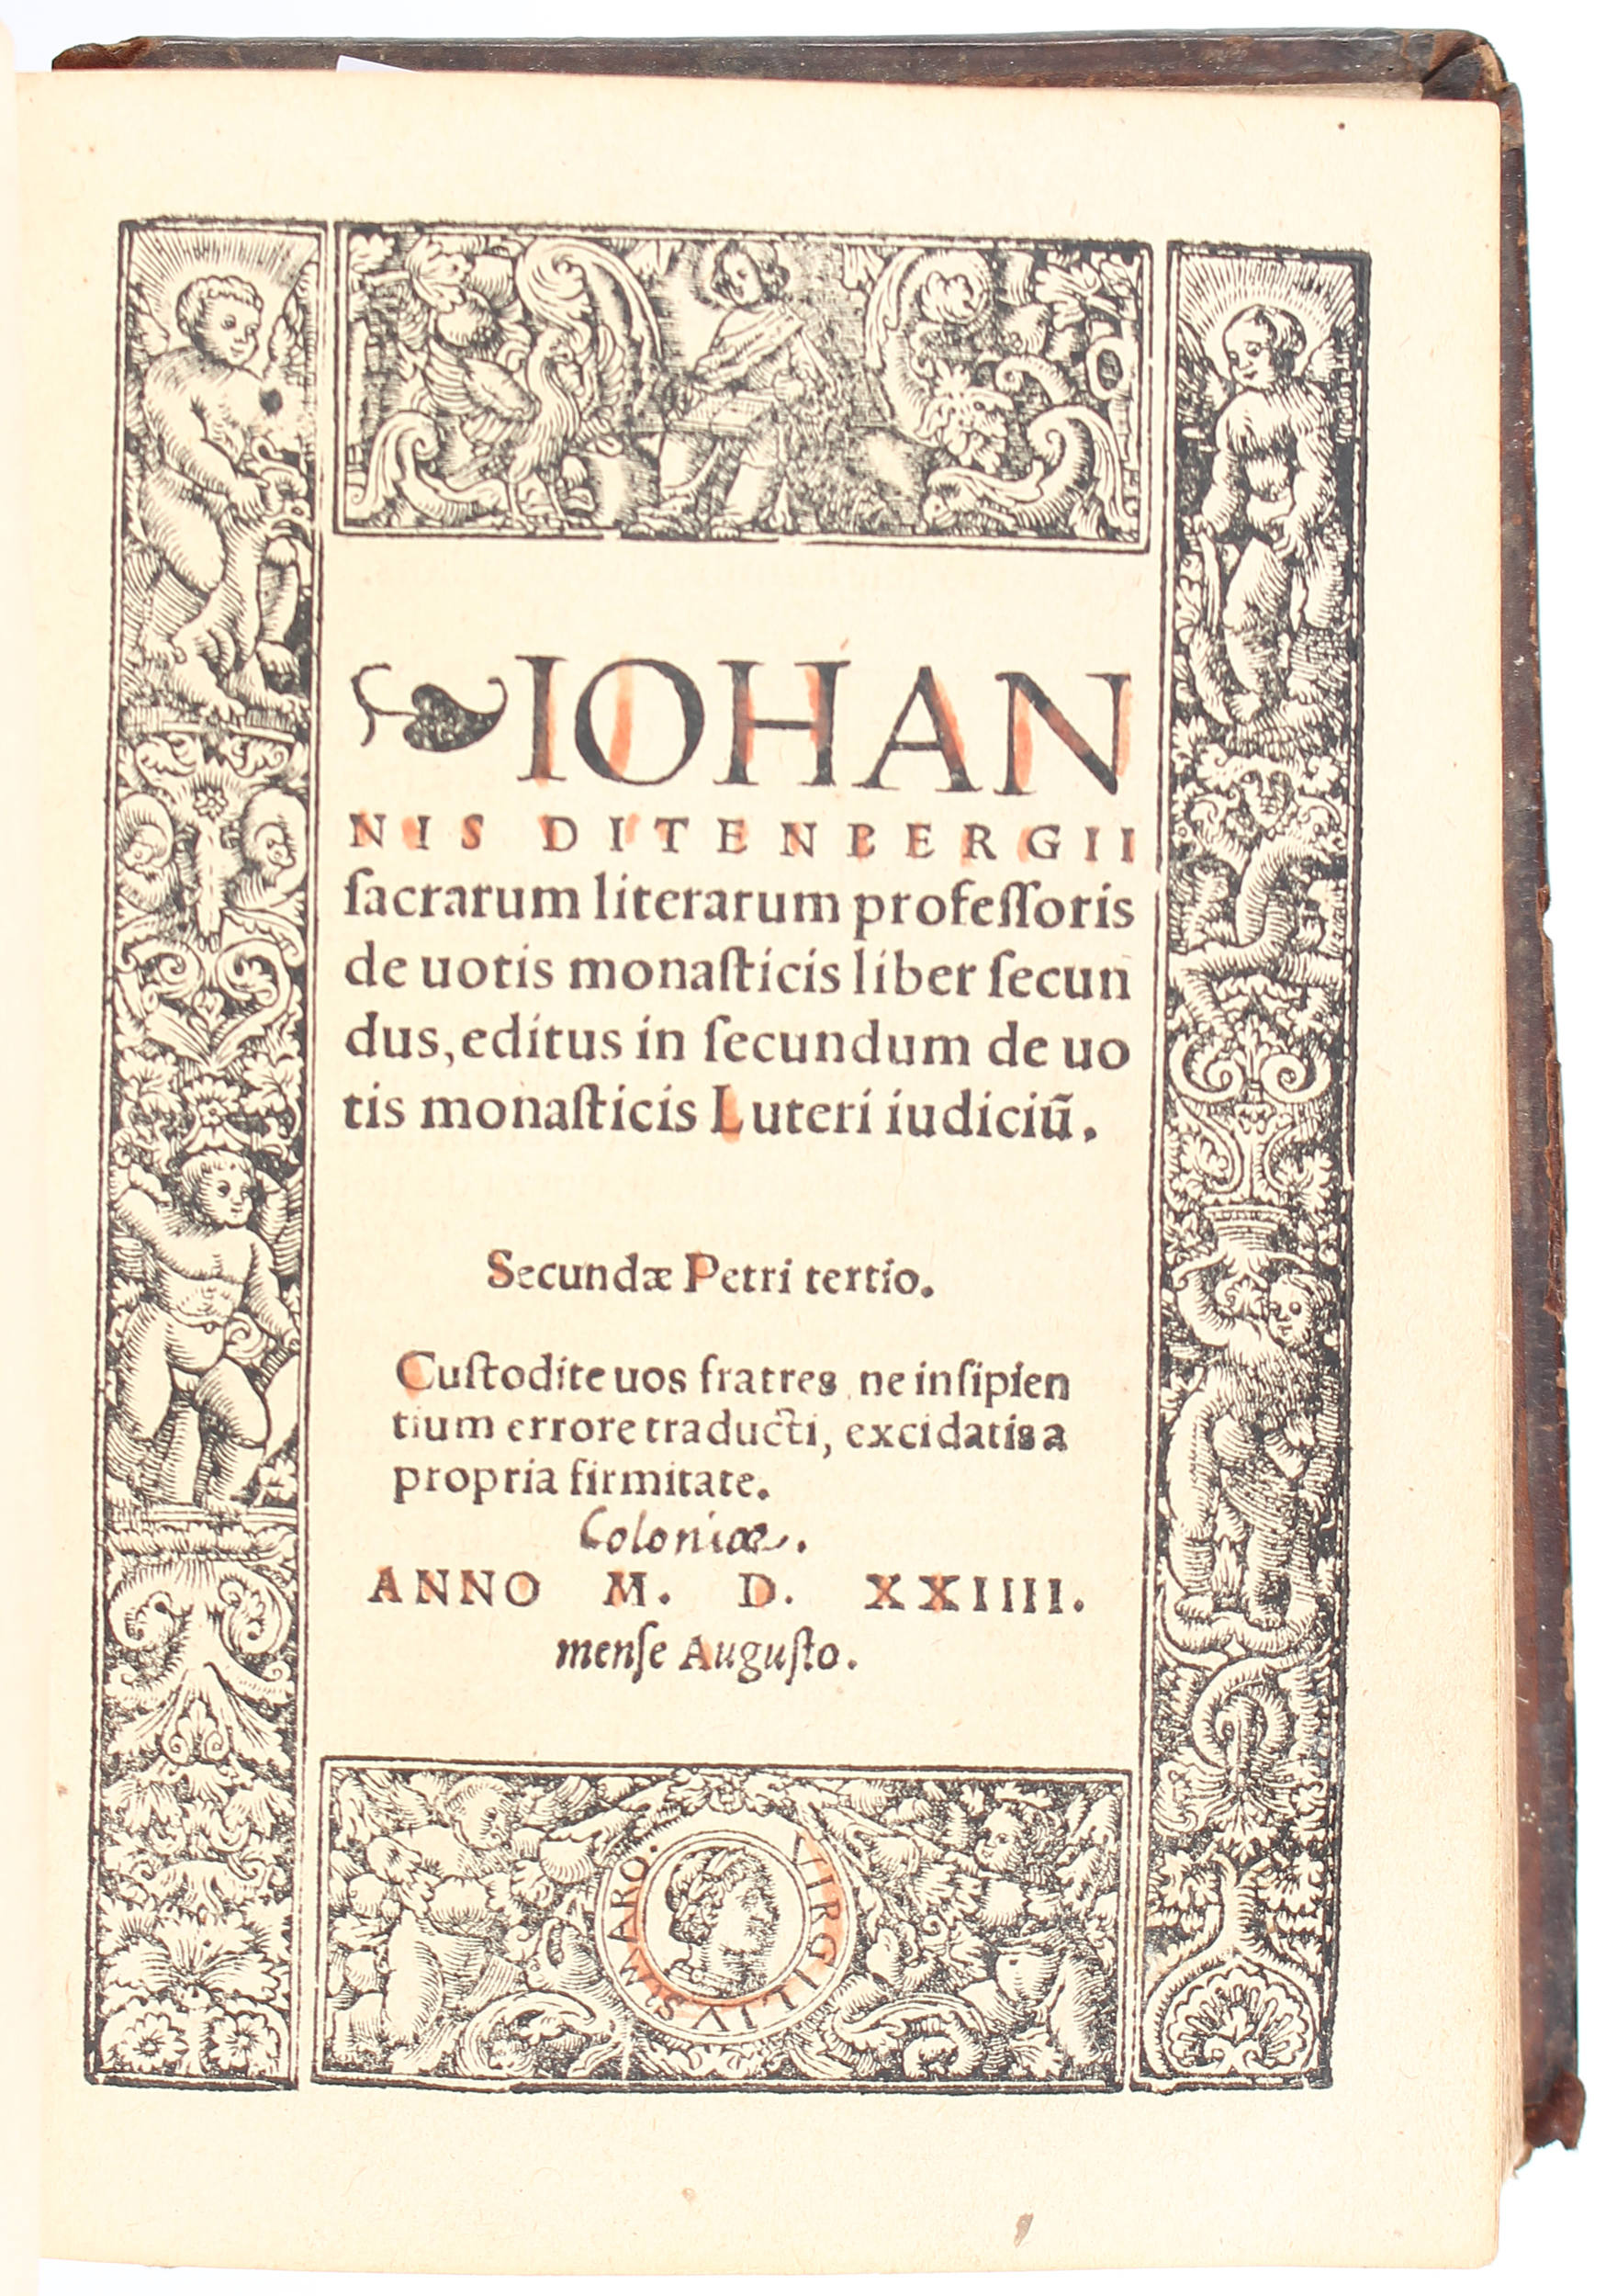 IOHAN
NIS DITENBERGII
sacrarum literarum professoris
de uotis monasticis liber secun
dus, editus in secundum de uo
tis monasticis Luteri iudiciũ.
Secundæ Petri tertio.
Custodite uos fratres ne insipien
tium errore traducti, excidatis a
propria firmitate.
Coloniæ.
ANNO M. D. XXIIII.
mense Augusto.
VIRGILIVS MARO.